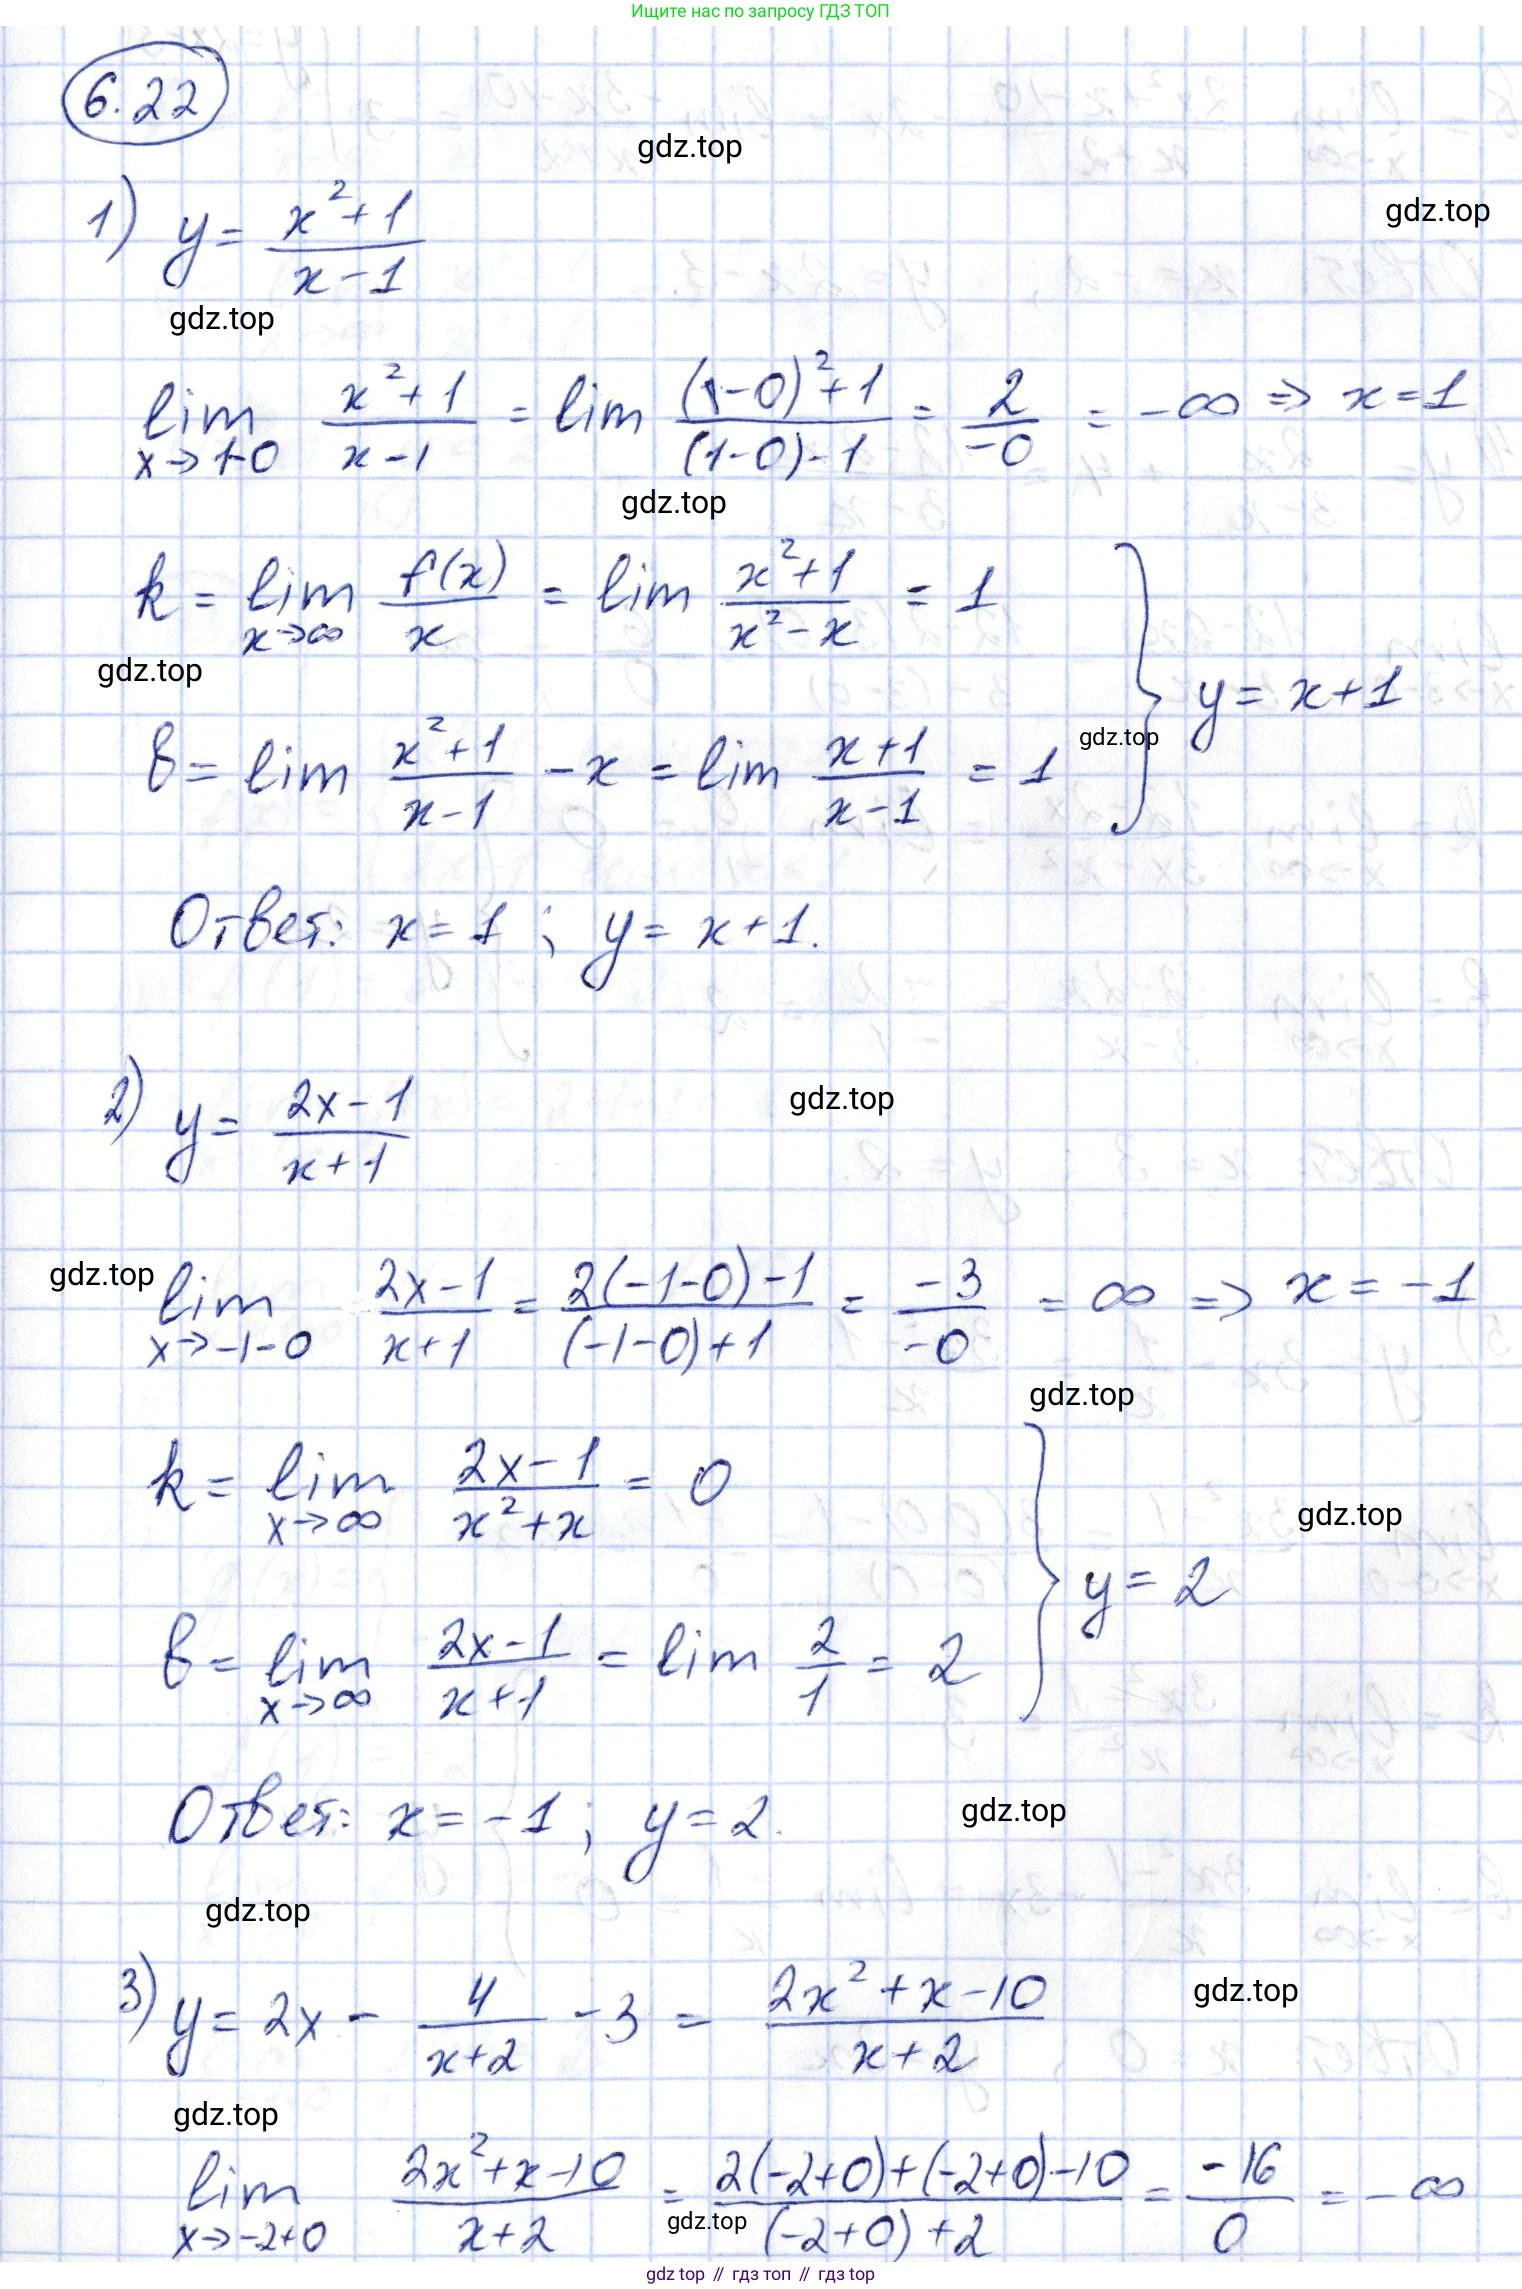 Ищите нас по запросу ГДЗ ТОП
6.22
gdz.top
1) y = (x²+1)/(x-1)
gdz.top
gdz.top
lim x→1-0 (x²+1)/(x-1) = lim ((1-0)²+1)/((1-0)-1) = 2/-0 = -∞ ⇒ x=1
gdz.top
k = lim x→∞ f(x)/x = lim (x²+1)/(x²-x) = 1
gdz.top
} y = x+1
gdz.top
b = lim (x²+1)/(x-1) - x = lim (x+1)/(x-1) = 1
Ответ: x = 1 ; y = x+1.
2) y = (2x-1)/(x+1)
gdz.top
gdz.top
lim x→-1-0 (2x-1)/(x+1) = (2(-1-0)-1)/((-1-0)+1) = -3/-0 = ∞ ⇒ x = -1
gdz.top
k = lim x→∞ (2x-1)/(x²+x) = 0
gdz.top
} y = 2
b = lim x→∞ (2x-1)/(x+1) = lim 2/1 = 2
Ответ: x = -1 ; y = 2.
gdz.top
gdz.top
3) y = 2x - 4/(x+2) - 3 = (2x²+x-10)/(x+2)
gdz.top
gdz.top
lim x→-2+0 (2x²+x-10)/(x+2) = (2(-2+0)+(-2+0)-10)/((-2+0)+2) = -16/0 = -∞
gdz.top
gdz.top // гдз топ // гдз top